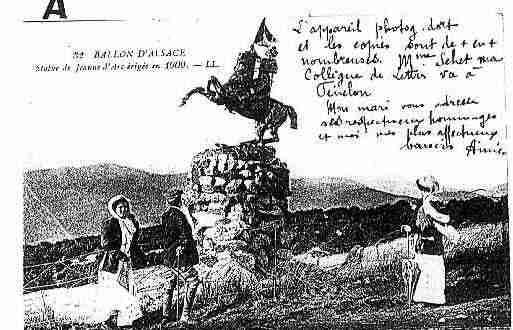 A
32 BALLON D'ALSACE
Statue de Jeanne d'Arc érigée en 1909. — LL.
L'appareil photog. dort
et les copies sont de + en +
nombreuses. Mme Sehet ma
Collègue de Lettres va à
Fénelon.
Mon mari vous adresse
ses respectueux hommages
et moi mes plus affectueux
baisers Aimée